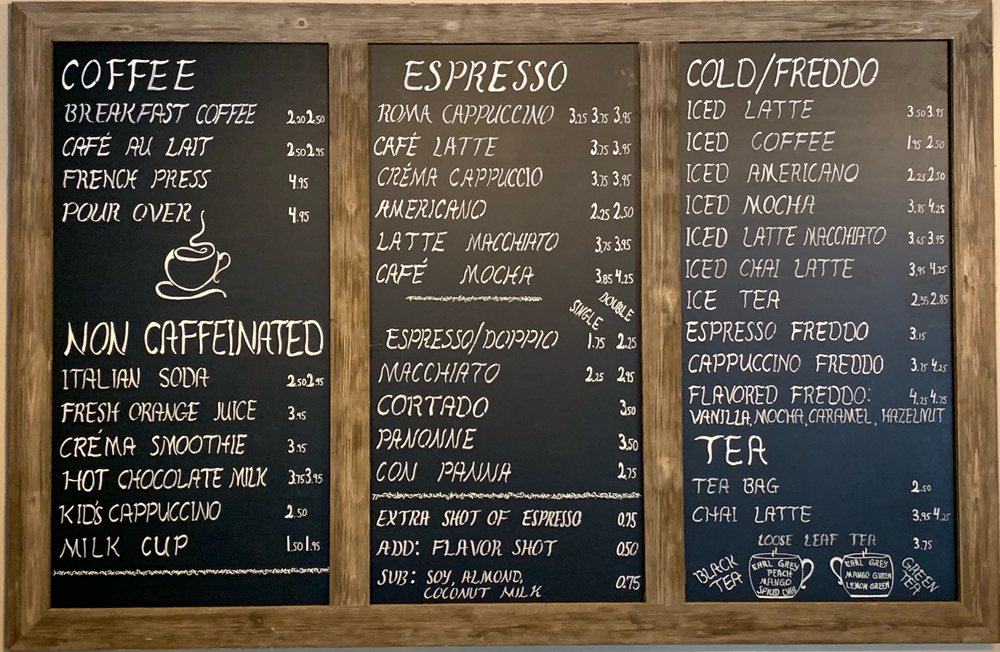 COFFEE
BREAKFAST COFFEE 2.20 2.50
CAFÉ AU LAIT 2.50 2.95
FRENCH PRESS 4.95
POUR OVER 4.95
NON CAFFEINATED
ITALIAN SODA 2.50 2.95
FRESH ORANGE JUICE 3.95
CRÉMA SMOOTHIE 3.95
HOT CHOCOLATE MILK 3.75 3.95
KID'S CAPPUCCINO 2.50
MILK CUP 1.50 1.95
ESPRESSO
ROMA CAPPUCCINO 3.25 3.75 3.95
CAFÉ LATTE 3.75 3.95
CRÉMA CAPPUCCIO 3.75 3.95
AMERICANO 2.25 2.50
LATTE MACCHIATO 3.75 3.95
CAFÉ MOCHA 3.85 4.25
SINGLE DOUBLE
ESPRESSO/DOPPIO 1.75 2.25
MACCHIATO 2.25 2.95
CORTADO 3.50
PANONNE 3.50
CON PANNA 2.75
EXTRA SHOT OF ESPRESSO 0.75
ADD: FLAVOR SHOT 0.50
SUB: SOY, ALMOND, 0.75
COCONUT MILK
COLD/FREDDO
ICED LATTE 3.50 3.95
ICED COFFEE 1.95 2.50
ICED AMERICANO 2.25 2.50
ICED MOCHA 3.85 4.25
ICED LATTE MACCHIATO 3.65 3.95
ICED CHAI LATTE 3.95 4.25
ICE TEA 2.35 2.85
ESPRESSO FREDDO 3.15
CAPPUCCINO FREDDO 3.75 4.25
FLAVORED FREDDO: 4.25 4.75
VANILLA, MOCHA, CARAMEL, HAZELNUT
TEA
TEA BAG 2.50
CHAI LATTE 3.95 4.25
LOOSE LEAF TEA 3.75
BLACK
TEA
EARL GREY
PEACH
MANGO
SPICED CHAI
EARL GREY
MANGO GREEN
LEMON GREEN
GREEN
TEA